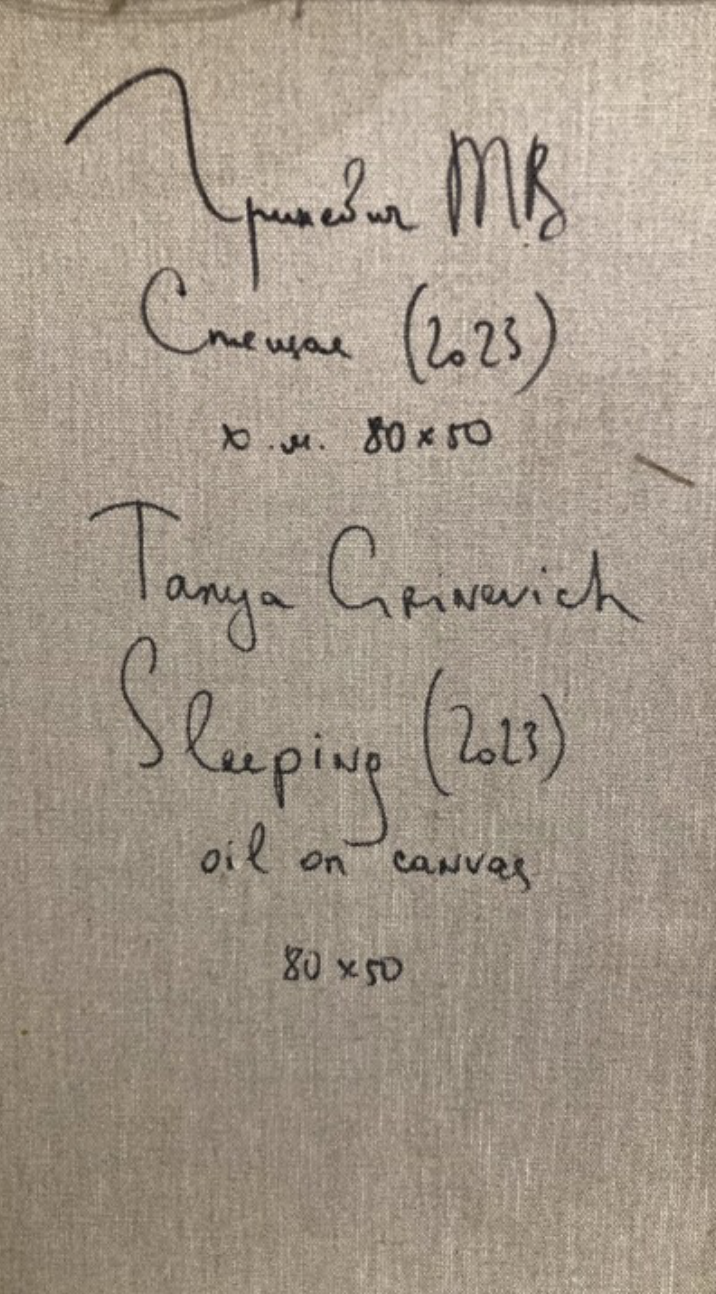 Гриневич ТВ
Спящая (2023)
х.м. 80×50
Tanya Grinevich
Sleeping (2023)
oil on canvas
80×50